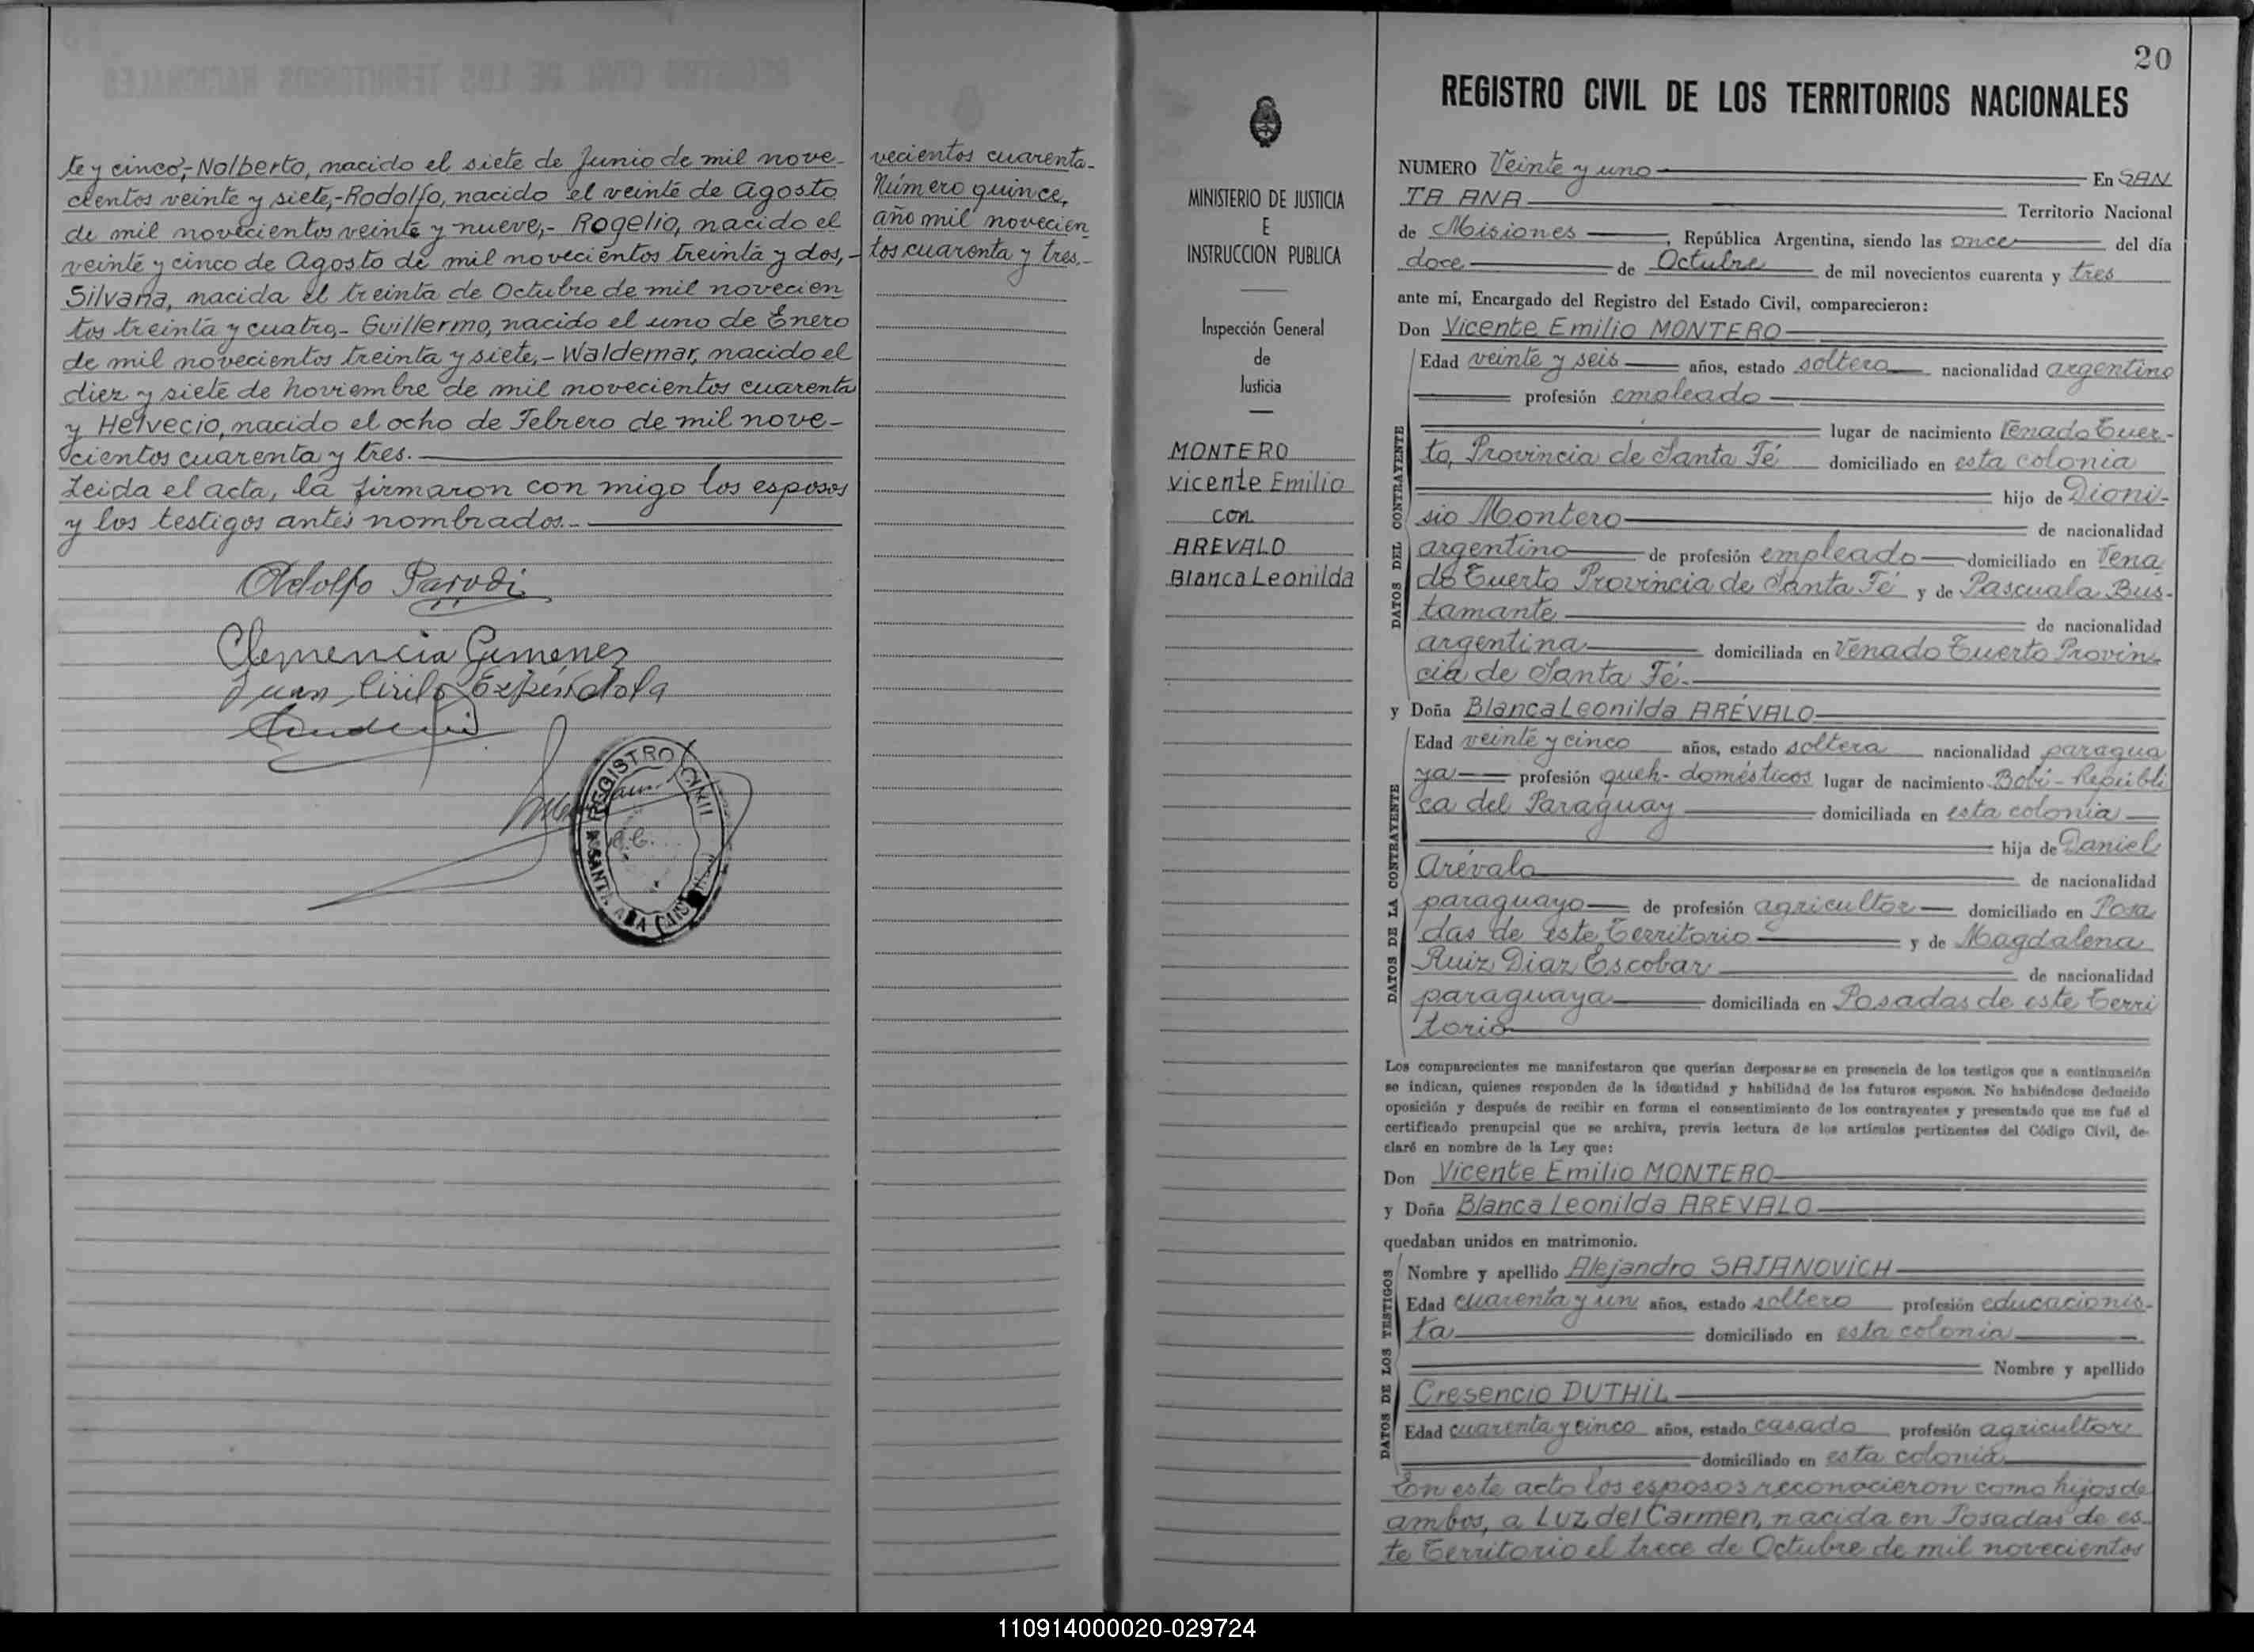 te y cinco,- Nolberto, nacido el siete de Junio de mil nove-
cientos veinte y siete,- Rodolfo, nacido el veinte de Agosto
de mil novecientos veinte y nueve,- Rogelio, nacido el
veinte y cinco de Agosto de mil novecientos treinta y dos,-
Silvana, nacida el treinta de Octubre de mil novecien
tos treinta y cuatro,- Guillermo, nacido el uno de Enero
de mil novecientos treinta y siete,- Waldemar, nacido el
diez y siete de Noviembre de mil novecientos cuarenta
y Helvecio, nacido el ocho de Febrero de mil nove-
cientos cuarenta y tres.
Leida el acta, la firmaron con migo los esposos
y los testigos antes nombrados.-
Adolfo Parodi
Clemencia Gimenez
Juan Cirilo
REGISTRO CIVIL
SANTA ANA
vecientos cuarenta.-
Número quince,
año mil novecien
tos cuarenta y tres.-
MINISTERIO DE JUSTICIA
E
INSTRUCCION PUBLICA
Inspección General
de
Justicia
MONTERO
Vicente Emilio
con
AREVALO
Blanca Leonilda
20
REGISTRO CIVIL DE LOS TERRITORIOS NACIONALES
NUMERO Veinte y uno En SAN
TA ANA Territorio Nacional
de Misiones, República Argentina, siendo las once del día
doce de Octubre de mil novecientos cuarenta y tres
ante mí, Encargado del Registro del Estado Civil, comparecieron:
Don Vicente Emilio MONTERO
DATOS DEL CONTRAYENTE
Edad veinte y seis años, estado soltero nacionalidad argentino
profesión empleado
lugar de nacimiento Venado Tuer-
to, Provincia de Santa Fé domiciliado en esta colonia
hijo de Dioni-
sio Montero de nacionalidad
argentino de profesión empleado domiciliado en Vena
do Tuerto Provincia de Santa Fé y de Pascuala Bus-
tamante de nacionalidad
argentina domiciliada en Venado Tuerto Provin-
cia de Santa Fé.
y Doña Blanca Leonilda ARÉVALO
DATOS DE LA CONTRAYENTE
Edad veinte y cinco años, estado soltera nacionalidad paragua
ya profesión queh- domésticos lugar de nacimiento Bobí - Repúbli
ca del Paraguay domiciliada en esta colonia
hija de Daniel
Arévalo de nacionalidad
paraguayo de profesión agricultor domiciliado en Posa
das de este Territorio y de Magdalena
Ruiz Diaz Escobar de nacionalidad
paraguaya domiciliada en Posadas de este Terri
torio
Los comparecientes me manifestaron que querían desposarse en presencia de los testigos que a continuación
se indican, quienes responden de la identidad y habilidad de los futuros esposos. No habiéndose deducido
oposición y después de recibir en forma el consentimiento de los contrayentes y presentado que me fué el
certificado prenupcial que se archiva, previa lectura de los artículos pertinentes del Código Civil, de-
claré en nombre de la Ley que:
Don Vicente Emilio MONTERO
y Doña Blanca Leonilda AREVALO
quedaban unidos en matrimonio.
DATOS DE LOS TESTIGOS
Nombre y apellido Alejandro SAJANOVICH
Edad cuarenta y un años, estado soltero profesión educacionis-
ta domiciliado en esta colonia
Nombre y apellido
Cresencio DUTHIL
Edad cuarenta y cinco años, estado casado profesión agricultor
domiciliado en esta colonia
En este acto los esposos reconocieron como hijos de
ambos, a Luz del Carmen, nacida en Posadas de es-
te Territorio el trece de Octubre de mil novecientos
110914000020-029724